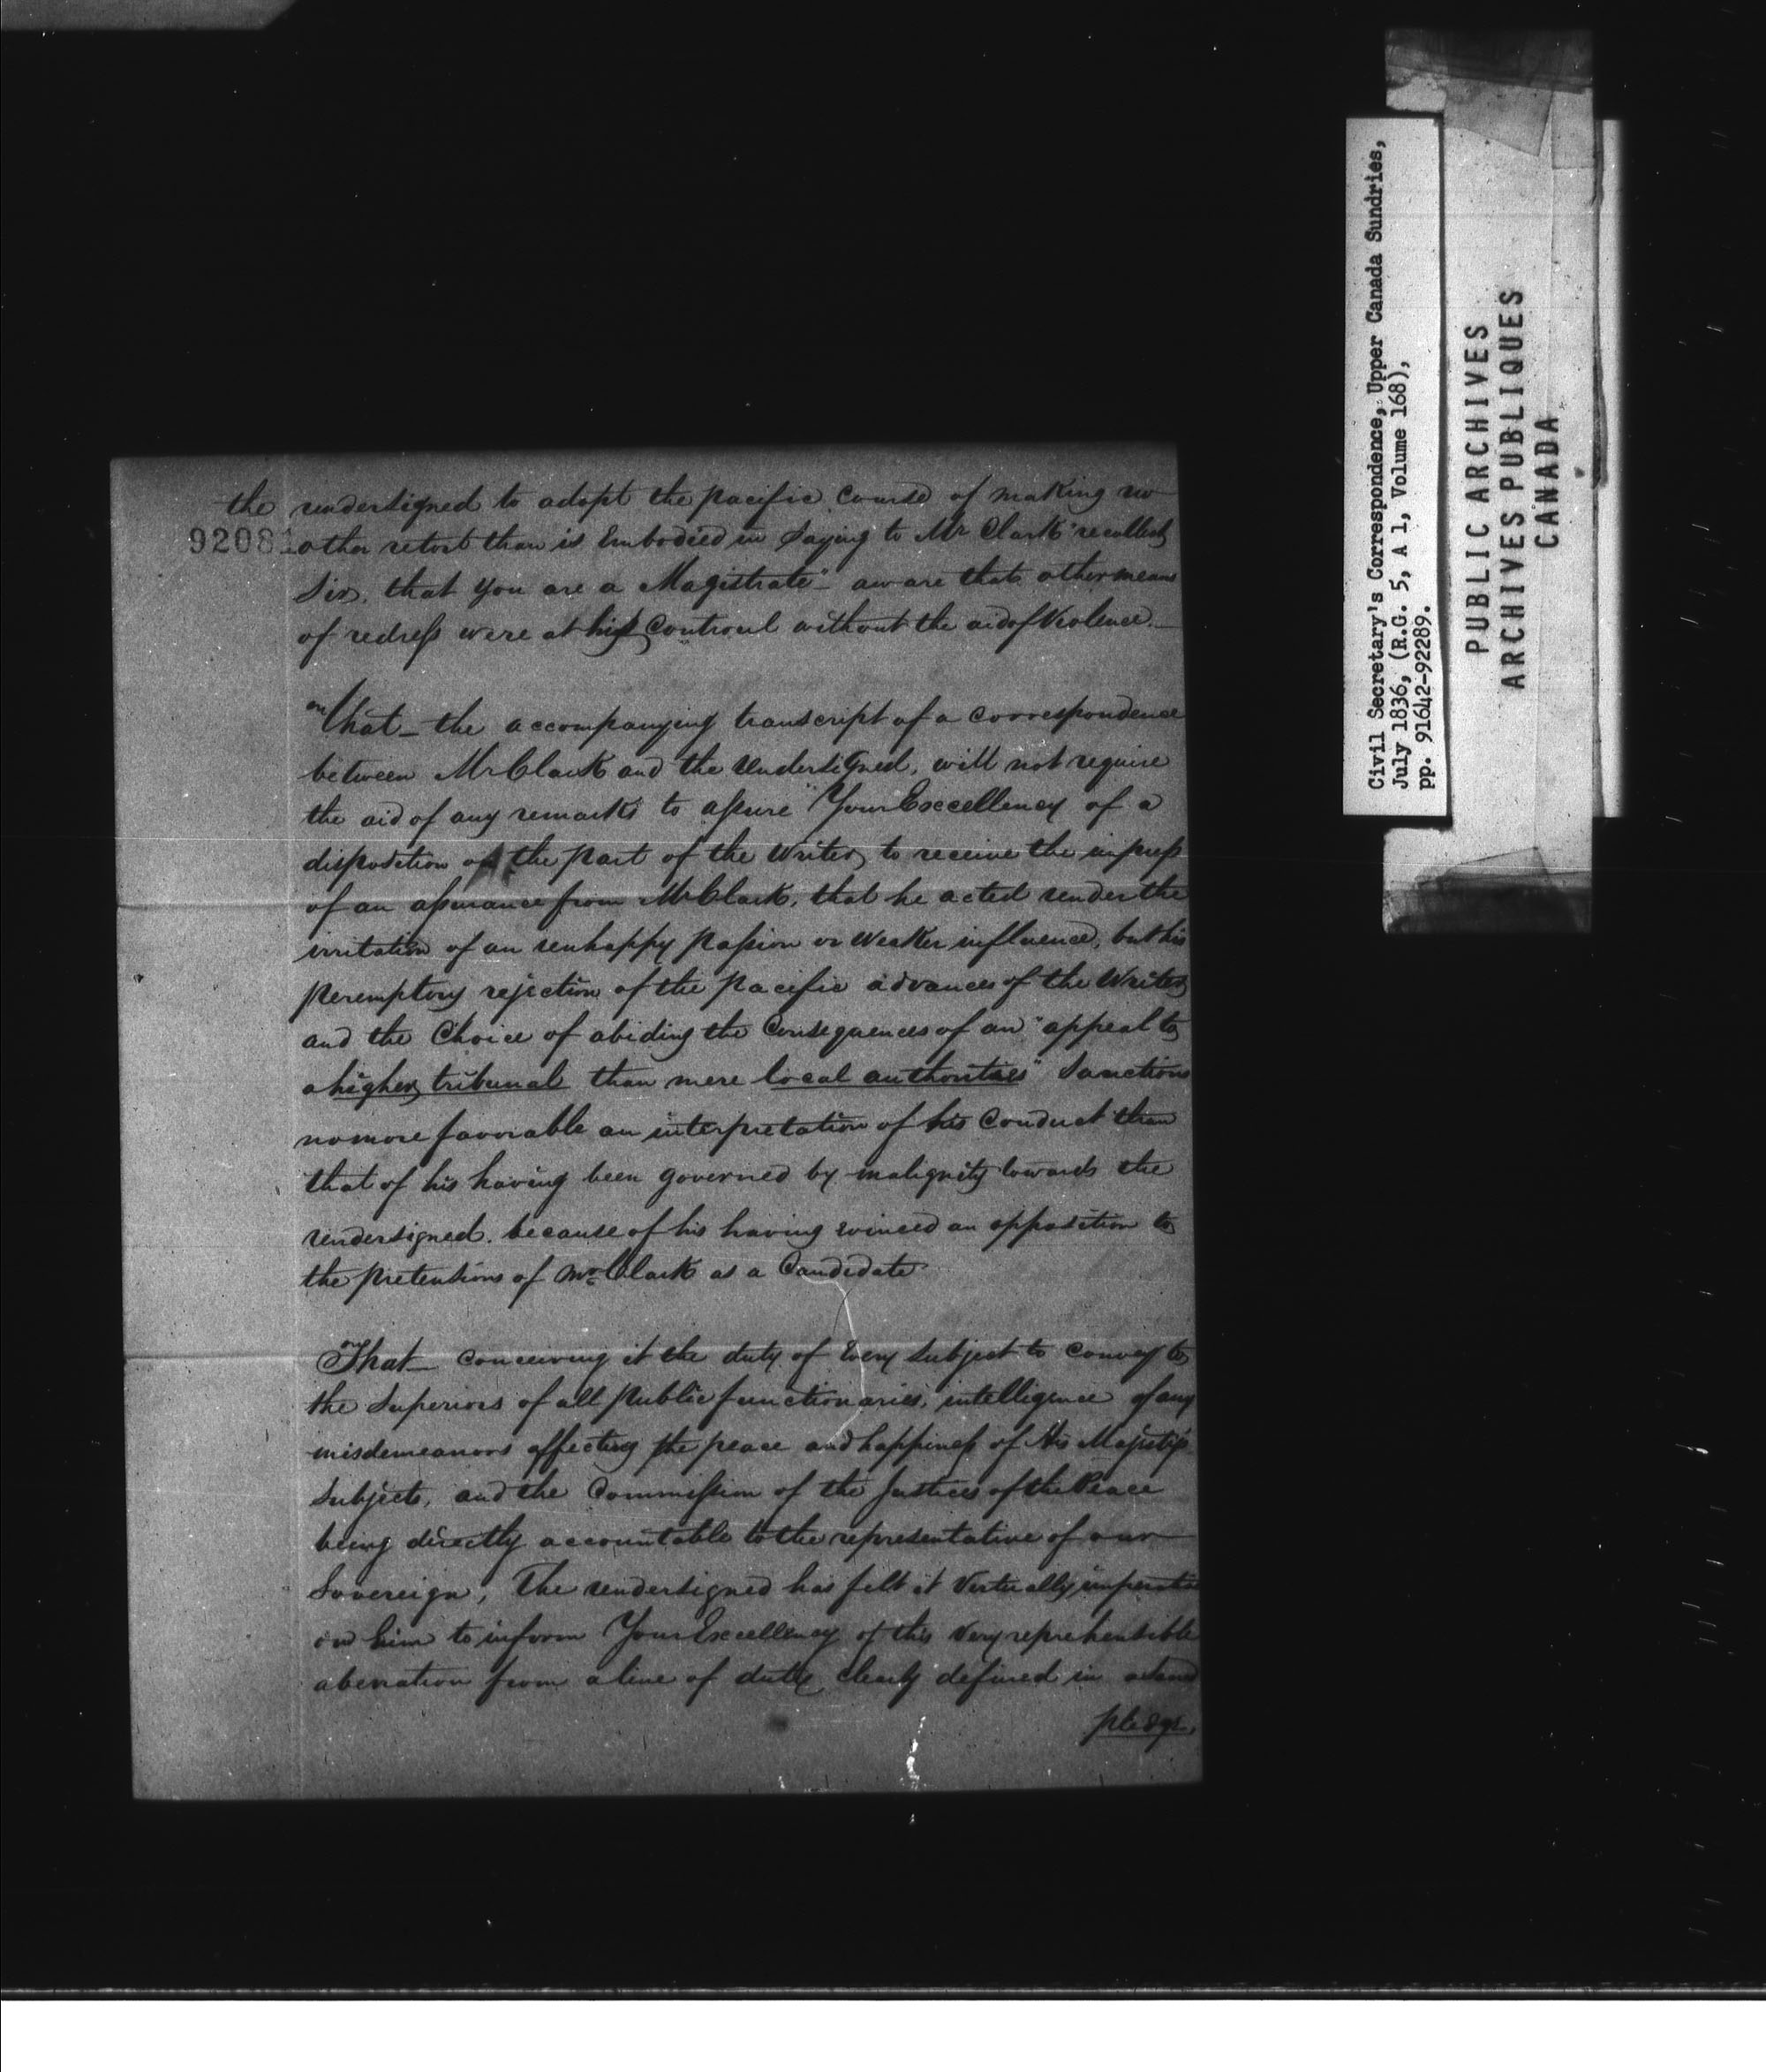 the undersigned to adopt the pacific course of making no
92081
other retort than is Embodied in Saying to Mr Clark "recollect
Sir, that you are a Magistrate" aware that other means
of redress were at his Controul without the aid of Violence.—
That— the accompanying transcript of a correspondence
between Mr Clark and the Undersigned, will not require
the aid of any remarks to assure Your Excellency of a
disposition on the part of the Writer, to receive the impress
of an assurance from Mr Clark, that he acted under the
irritation of an unhappy passion or weaker influence, but his
peremptory rejection of the pacific advances of the Writer
and the Choice of abiding the Consequences of an "appeal to
a higher tribunal than mere local authorities" Sanctions
no more favorable an interpretation of his Conduct than
that of his having been governed by malignity towards the
undersigned, because of his having evinced an opposition to
the pretentions of Mr Clark as a Candidate
That— conceiving it the duty of Every Subject to convey to
the Superiors of all public functionaries, intelligence of any
misdemeanors affecting the peace and happiness of His Majestys
Subjects, and the Commission of the Justices of the Peace
being directly accountable to the representative of our
Sovereign, The undersigned has felt it Virtually imperative
on him to inform Your Excellency of this Very reprehensible
aberration from a line of duty clearly defined in
pledge,
Civil Secretary's Correspondence, Upper Canada Sundries,
July 1836, (R.G. 5, A 1, Volume 168),
pp. 91642-92289.
PUBLIC ARCHIVES
ARCHIVES PUBLIQUES
CANADA